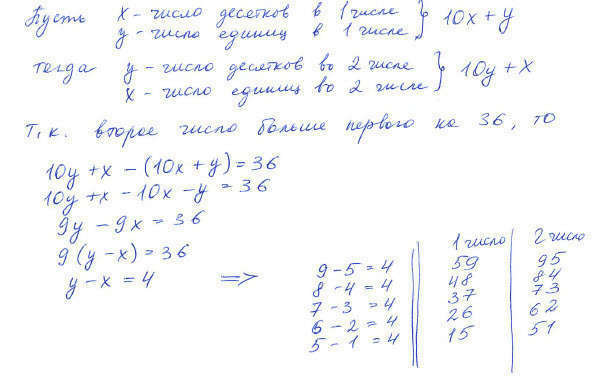 Пусть х - число десетков в 1 числе } 10х + у
у - число единиц в 1 числе
тогда у - число десетков во 2 числе } 10у + х
х - число единиц во 2 числе
Т.к. второе число больше первого на 36, то
10у + х - (10х + у) = 36
10у + х - 10х - у = 36
9у - 9х = 36
9 (у - х) = 36
у - х = 4 =>
1 число 2 число
9 - 5 = 4 59 95
8 - 4 = 4 48 84
7 - 3 = 4 37 73
6 - 2 = 4 26 62
5 - 1 = 4 15 51